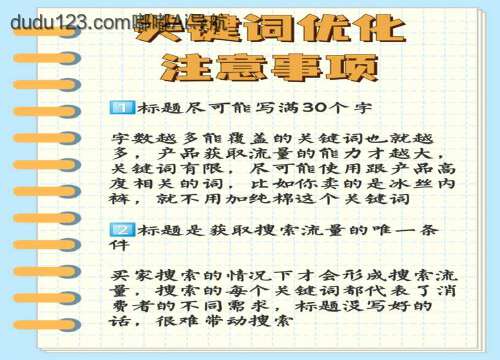 dudu123.com嘟嘟AI导航
关键词优化
注意事项
1 标题尽可能写满30个字
字数越多能覆盖的关键词也就越
多，产品获取流量的能力才越大，
关键词有限，尽可能使用跟产品高
度相关的词，比如你卖的是冰丝内
裤，就不用加纯棉这个关键词
2 标题是获取搜索流量的唯一条
件
买家搜索的情况下才会形成搜索流
量，搜索的每个关键词都代表了消
费者的不同需求，标题没写好的
话，很难带动搜索